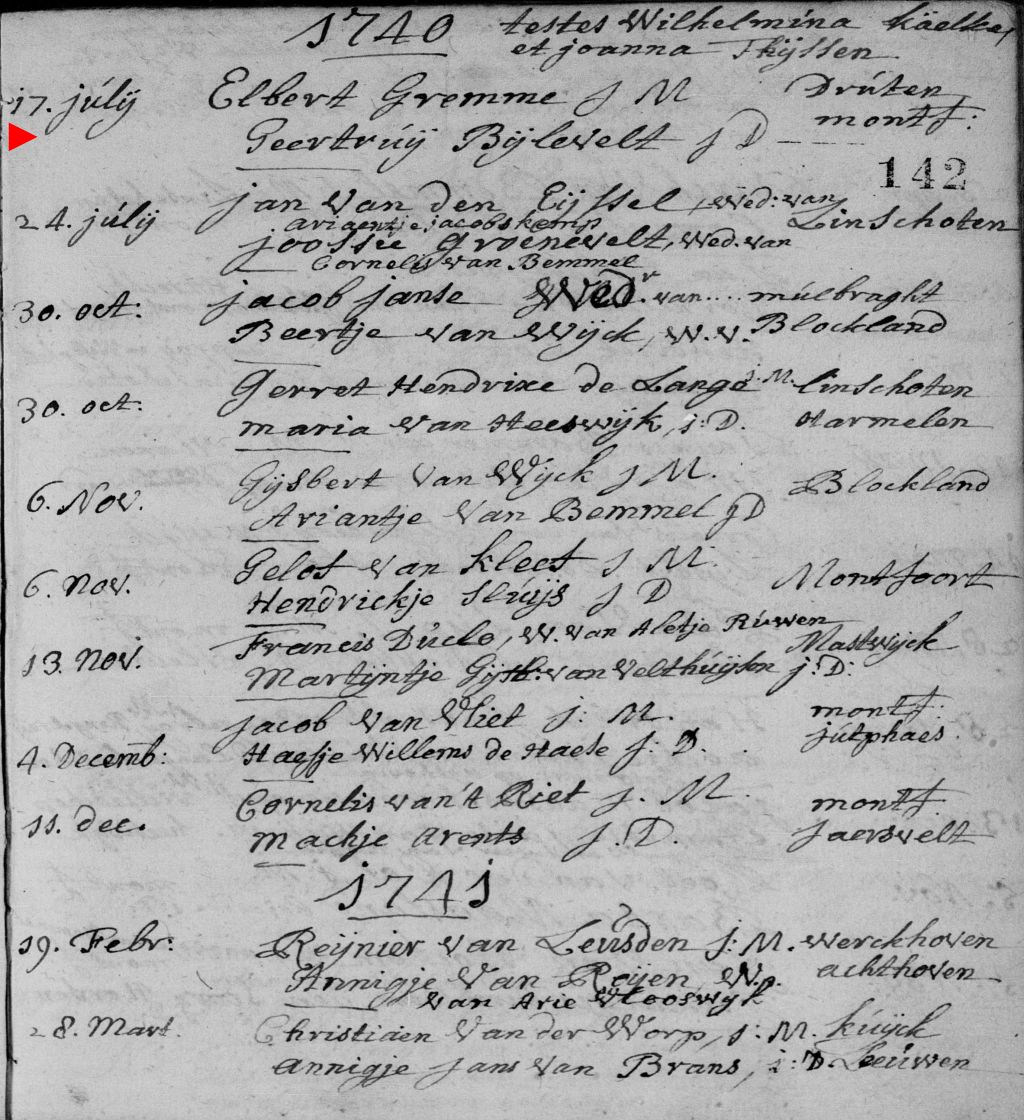 1740 testes Wilhelmina Käelke,
et joanna Thÿssen
17. júlÿ Elbert Gremme J M Drúten
Geertrúÿ Bÿlevelt J D montf:
142
24. júlÿ jan Van den Eÿssel, Wed: van Linschoten
ariaentje jacobs kemp
joossie Groenevelt, Wed. van
Cornelis van Bemmel
30. oct: jacob janse Wed.r van.... múlbraght
Beertje van Wÿck, W. v. Blockland
30. oct: Gerret Hendrixe de Lange j: M. linschoten
maria van Heeswÿk, j: D. Harmelen
6. Nov. Gÿsbert Van Wÿck J M. Blockland
Ariantje Van Bemmel J D
6. Nov. Gelot van kleef J M. Montfoort
Hendrickje Slúÿs J D
13. Nov. Francis Dúclo, W. van Aletje Rúwen Mastwÿck
Martÿntje Gÿsb: van Velthúÿsen j: D:
4. Decemb: jacob Van Vliet j: M. montf:
Haesje Willems de Haese J: D. jútphaes.
11. dec. Cornelis van't Riet J. M. montf.
Machje Arents J. D. Jaersvelt
1741
19. Febr: Reÿnier van Leusden J: M. werckhoven
Annigje Van Reÿen, W. achthoven
van Arie Vlooswÿk
28. Mart. Christiaen Van der Worp, J: M. kúÿck
annigje Jans Van Brans, j: D. Leeúwen